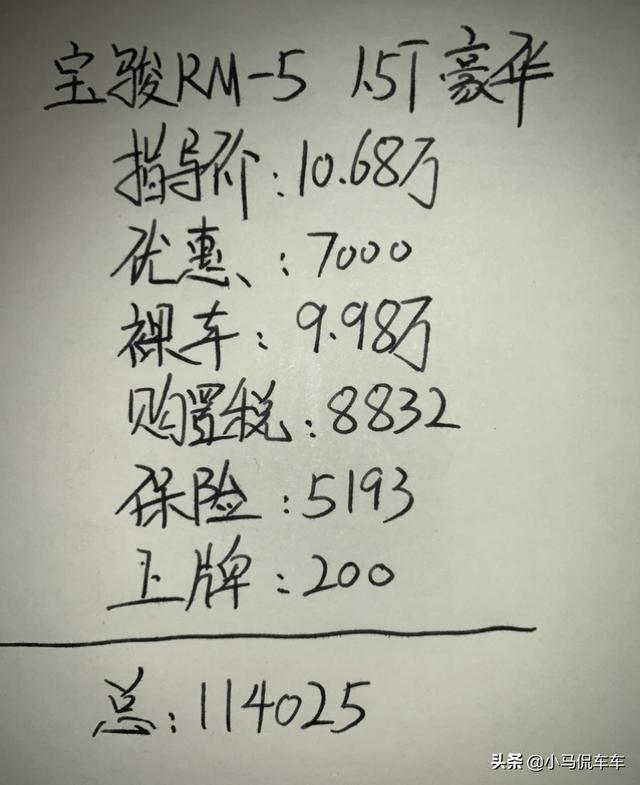 宝骏RM-5 1.5T豪华
指导价:10.68万
优惠、:7000
裸车:9.98万
购置税:8832
保险:5193
上牌:200
总:114025
头条 @小马侃车车